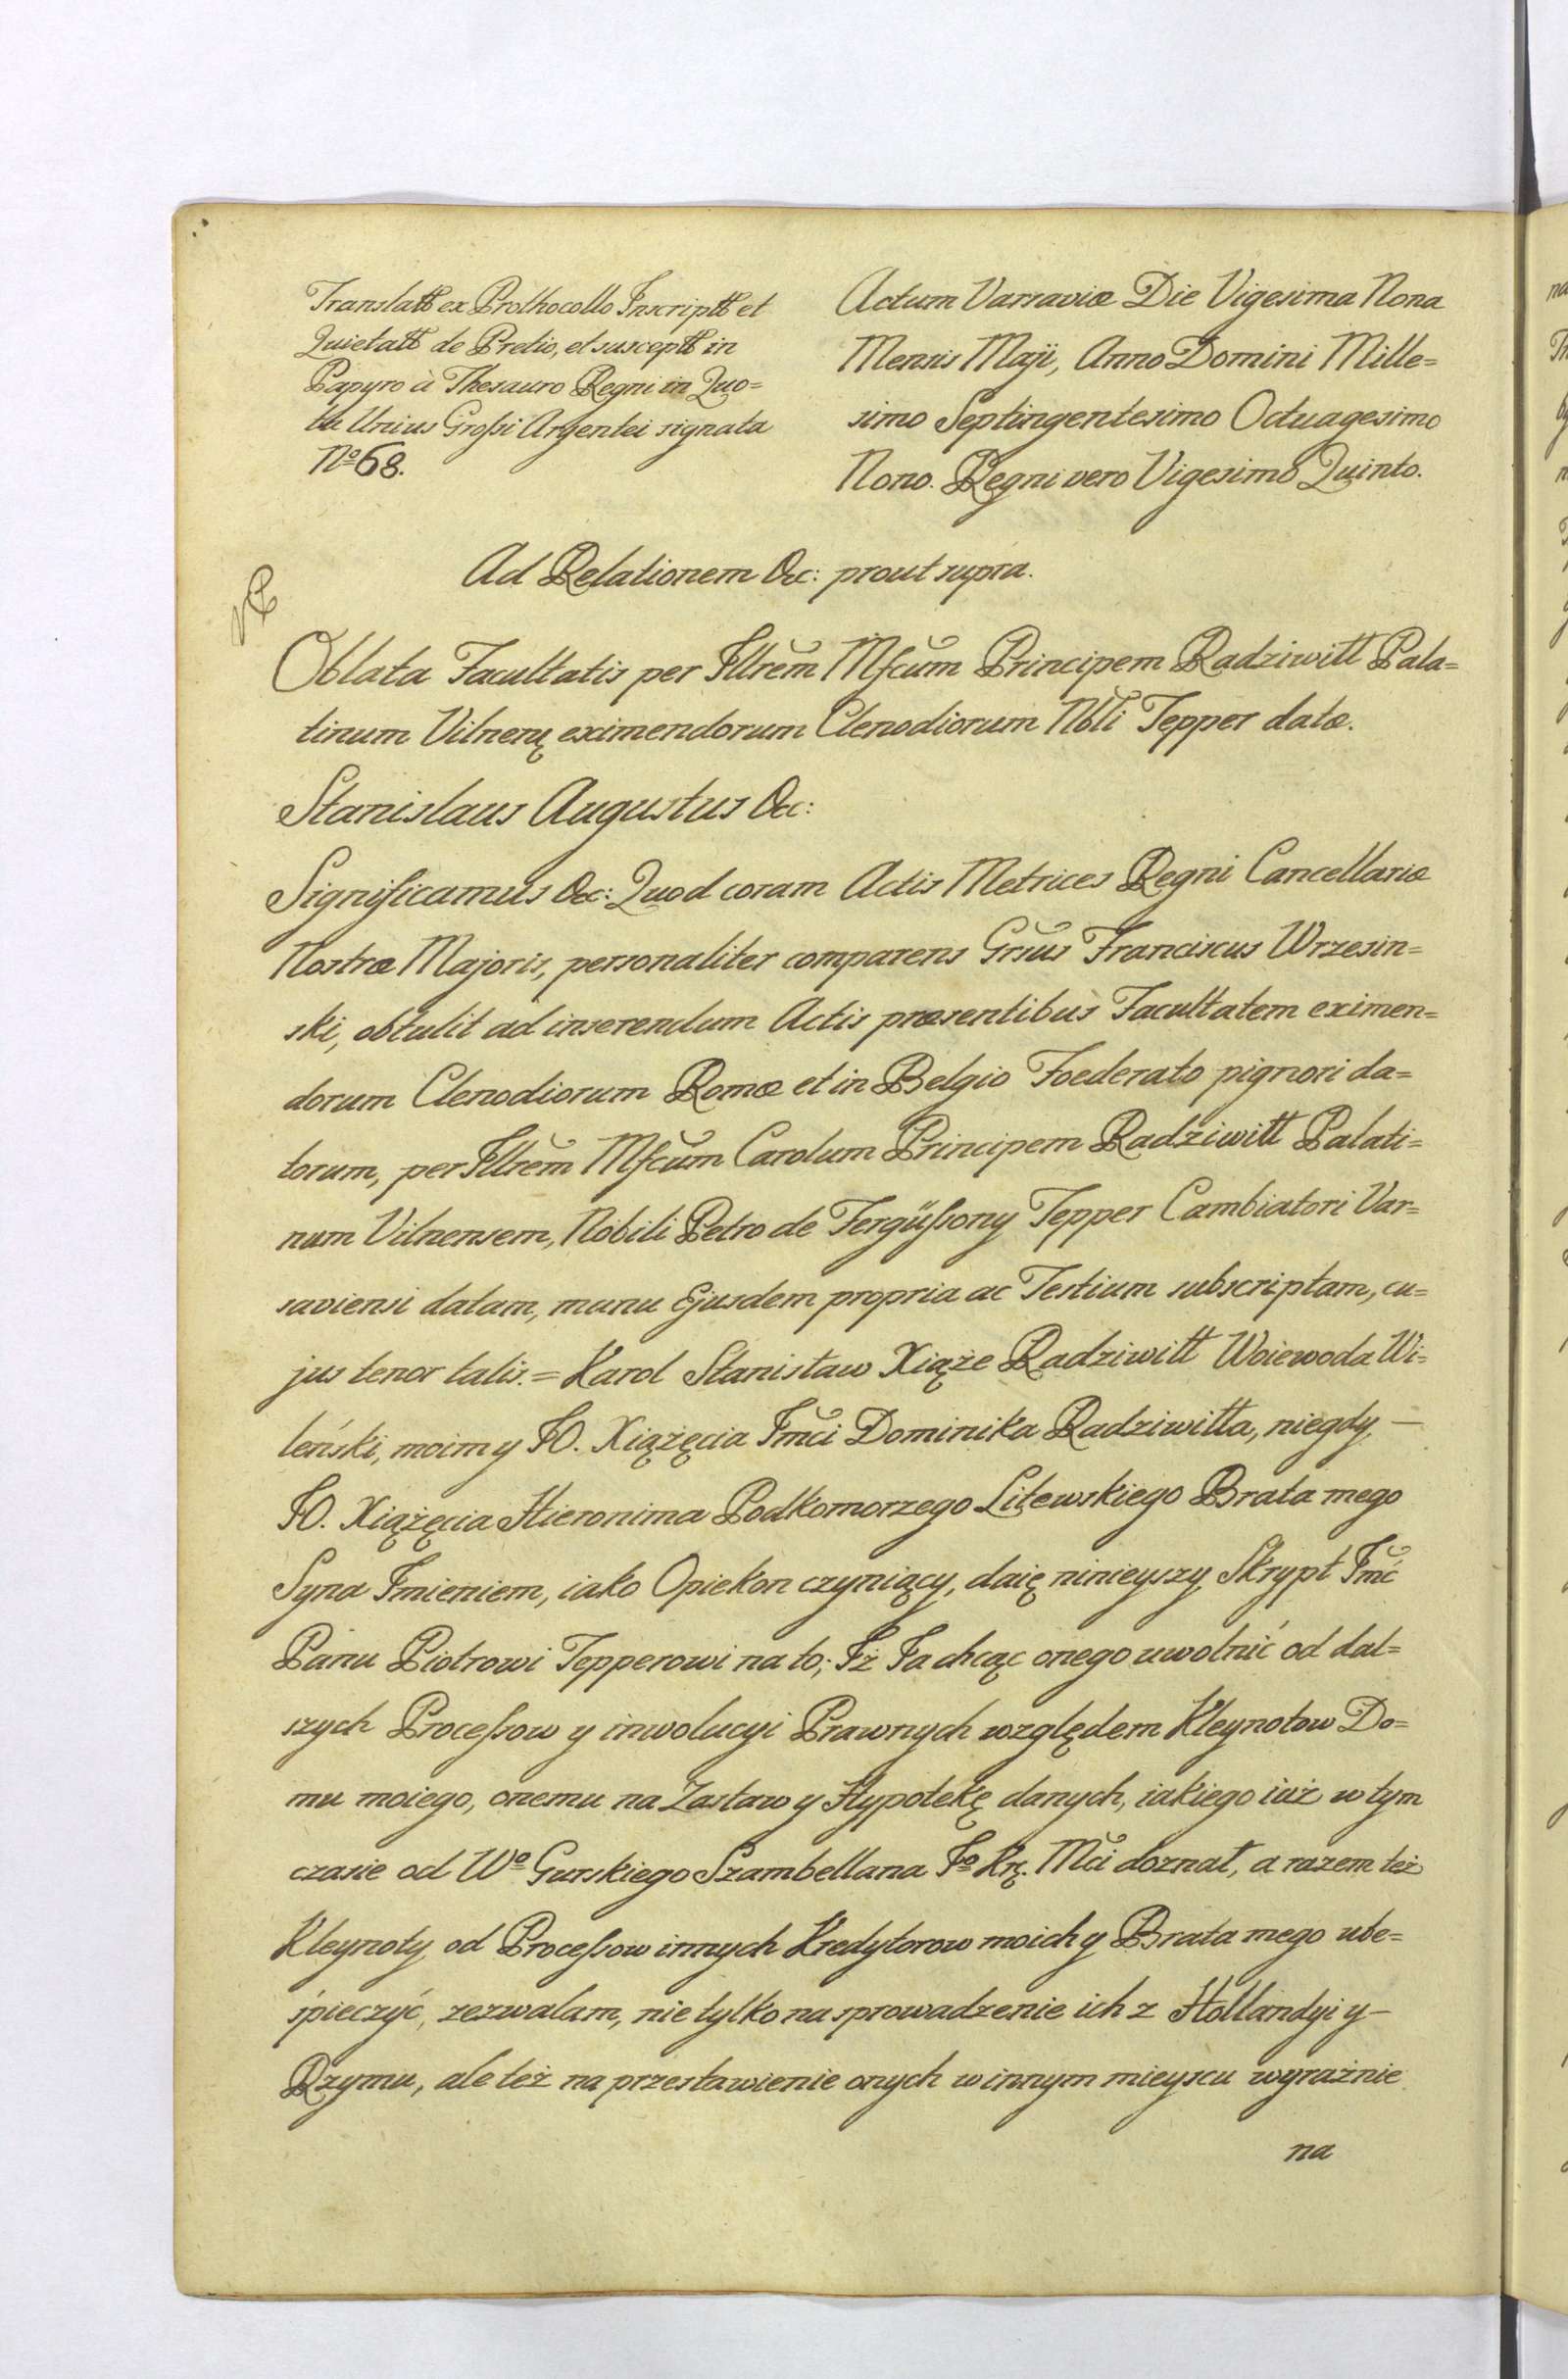 Translatt ex Prothocollo Inscriptt et
Quietatt de Pretio, et susceptt in
Papyro à Thesauro Regni in Quo=
ta Unius Grossi Argentei signata
No 68.
Actum Varsaviæ Die Vigesima Nona
Mensis Maji, Anno Domini Mille=
simo Septingentesimo Octuagesimo
Nono. Regni vero Vigesimo Quinto.
Ad Relationem &c: prout supra.
Oblata Facultatis per Illrem Mfcum Principem Radziwiłł Pala=
tinum Vilnen: eximendorum Clenodiorum Nbli Tepper datæ.
Stanislaus Augustus &c:
Significamus &c: Quod coram Actis Metrices Regni Cancellariæ
Nostræ Majoris, personaliter comparens Grsus Franciscus Wrzesin=
ski, obtulit ad inserendum Actis præsentibus Facultatem eximen=
dorum Clenodiorum Romæ et in Belgio Foederato pignori da=
torum, per Illrem Mfcum Carolum Principem Radziwiłł Palati=
num Vilnensem, Nobili Petro de Fergüssony Tepper Cambiatori Var=
saviensi datam, manu Ejusdem propria ac Testium subscriptam, cu=
jus tenor talis. = Karol Stanisław Xiąże Radziwiłł Woiewoda Wi=
leński, moim y JO. Xiążęcia Jmci Dominika Radziwiłła, niegdy, —
JO. Xiążęcia Hieronima Podkomorzego Litewskiego Brata mego
Syna Jmieniem, iako Opiekon czyniący, daię ninieyszy Skrypt Jmć
Panu Piotrowi Tepperowi na to; Jż Ja chcąc onego uwolnić od dal=
szych Processow y inwolucyi Prawnych względem Kleynotow Do=
mu moiego, onemu na Zastaw y Hypotekę danych, iakiego iuż w tym
czasie od Wo Gurskiego Szambellana Jo Krj. Mci doznał, a razem też
Kleynoty od Processow innych Kredytorow moich y Brata mego ube=
śpieczyć, zezwalam, nie tylko na sprowadzenie ich z Hollandyi y —
Rzymu, ale też na przestawienie onych w innym mieyscu wyraźnie
na